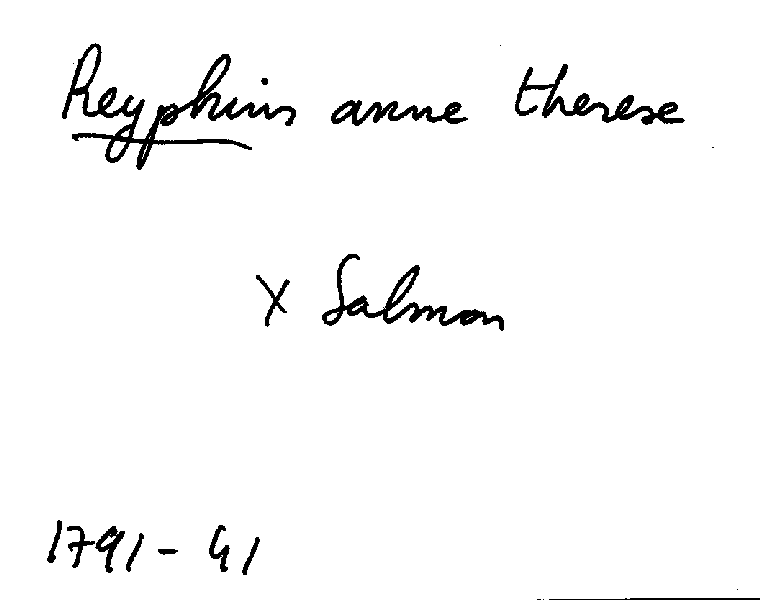 Reyphins anne therese
X Salmon
1791 - 41